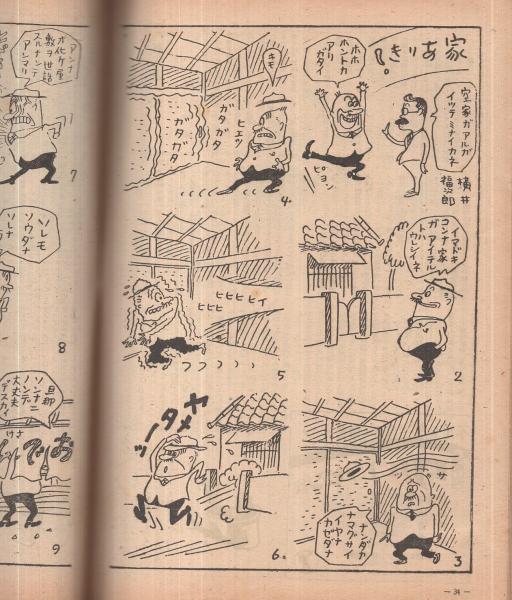 家ありき！
横井福次郎
空家ガアルガ
イッテミナイカネ
ホホ
ホントカ
アリ
ガタイ
ピヨン
イマドキ
コンナ家
ガアイテル
トハ
ウレシイネ
2
サ
ッ
ナンダカ
ナマグサイ
イヤナ
カゼダナ
3
キモ
ヒエッ
ガタガタ
ガタガタ
4
ヒヒヒヒイ
ヒヒヒ
5
ヤメタ
ーッ
6
アンナ
オ化ケ屋
敷ヲ世話
スルナンテ
アンマリ
7
ソレモ
ソウダナ
ソレナ
8
旦那
ソンナニ
ノンデ
大丈夫
デスカ
おでん
9
— 34 —